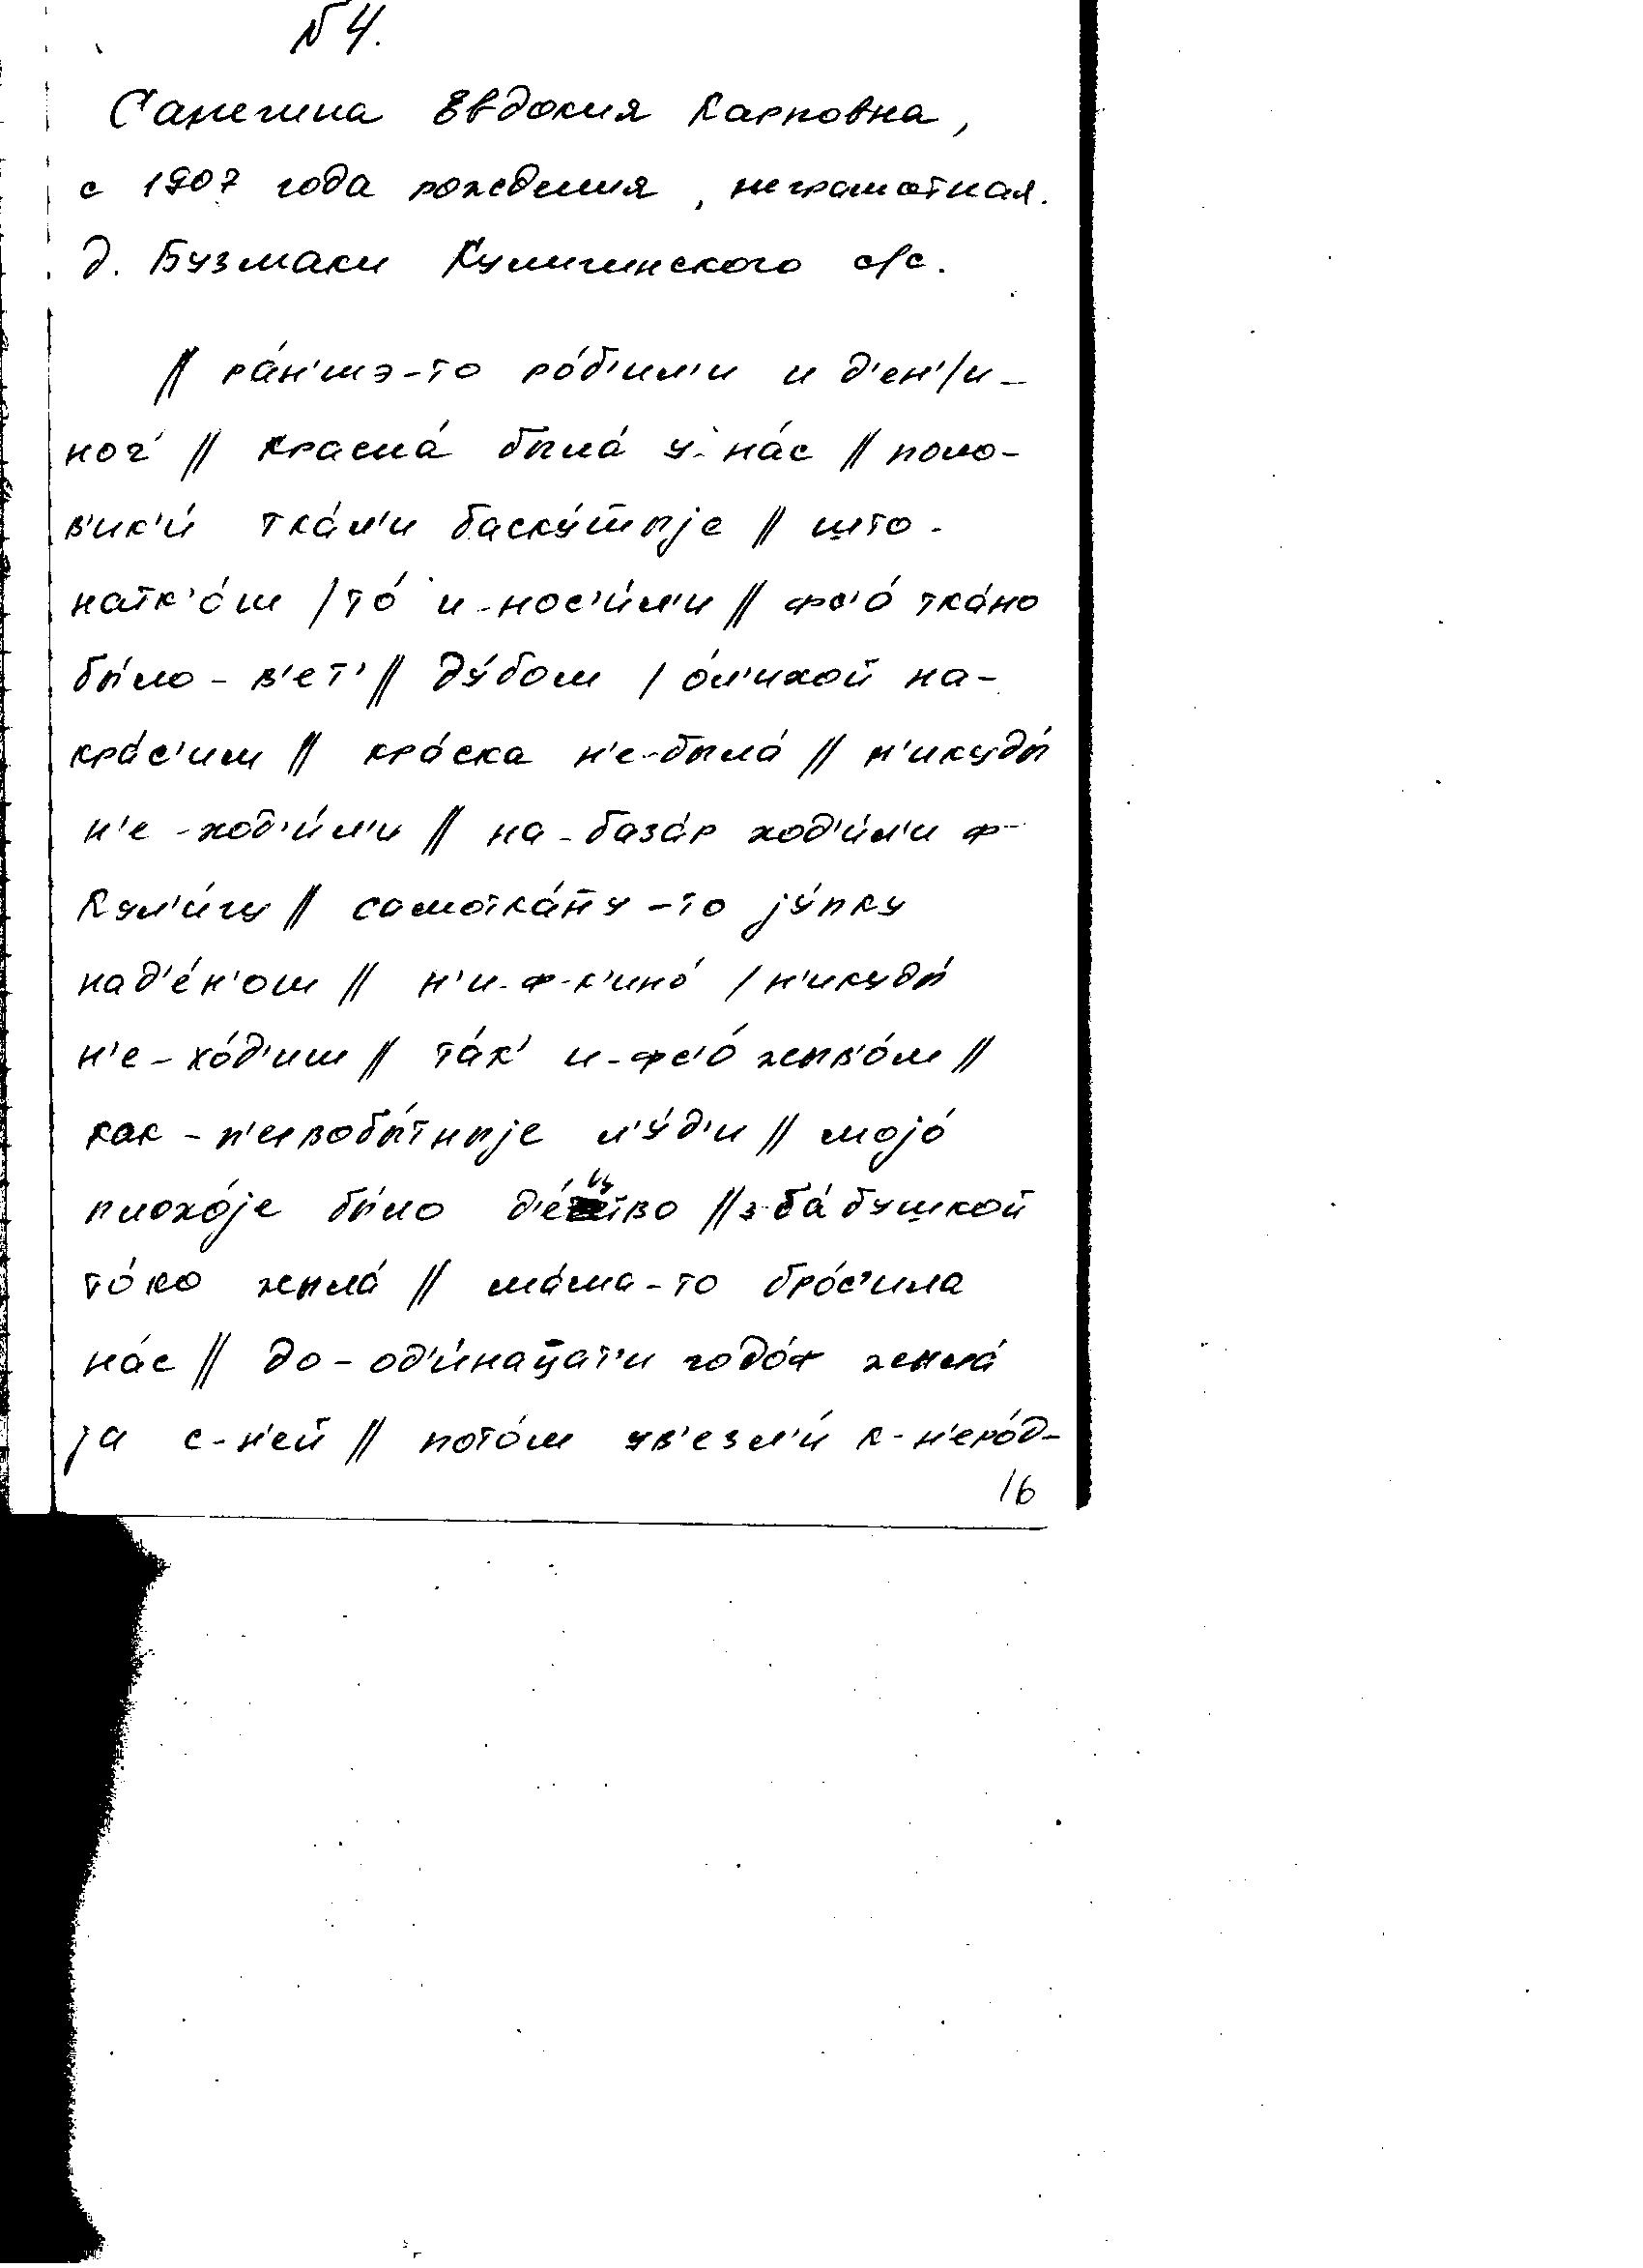 N 4.
Санегина Евдокия Карповна,
с 1907 года рождения, неграмотная.
д. Бузмаки Кулигинского с/с.
// ра́н'шэ-то ро́б'ил'и и д'ен'/и-
ноч' // красна́ была́ у-на́с // поло-
в'ик'и́ тка́л'и баску́шшыjе // што-
натк'о́ш / то́ и-нос'и́л'и // фс'о́ тка́но
бы́ло-в'ет' // ду́бом / о́л'ихой на-
кра́с'им // кра́ска н'е-была́ // н'икуды́
н'е-ход'и́л'и // на-база́р ход'и́л'и ф-
Кул'и́гу // самотка́ну-то jу́пку
над'е́н'ош // н'и-ф-к'ино́ / н'икуды́
н'е-хо́д'иш // та́к' и-фс'о́ жыв'о́м //
как-п'ервобы́тныjе л'у́д'и // моjо́
плохо́jе бы́ло д'е́цтво // з-ба́бушкой
то́ко жыла́ // ма́ма-то бро́с'ила
на́с // до-од'и́нацат'и годо́ф жыла́
jа с-н'ей // пото́м ув'езл'и́ к-н'еро́д-
16